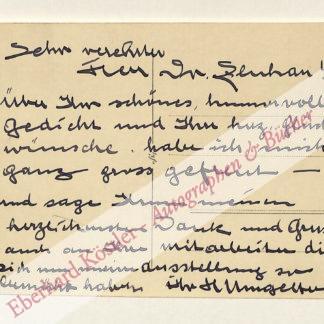 Sehr verehrter
Herr Dr. Elmhau!
Über Ihr schönes, humorvoll
gedicht und Ihre hrz. Glück
wünsche habe ich mich
ganz gross gefreut —
und sage Ihnen meinen
herzlichsten Dank und Gruss
auch an Ihre Mitarbeiter die
sich um meine Ausstellung so
bemüht haben. Ihr
Eberhard Köstler Autographen & Bücher